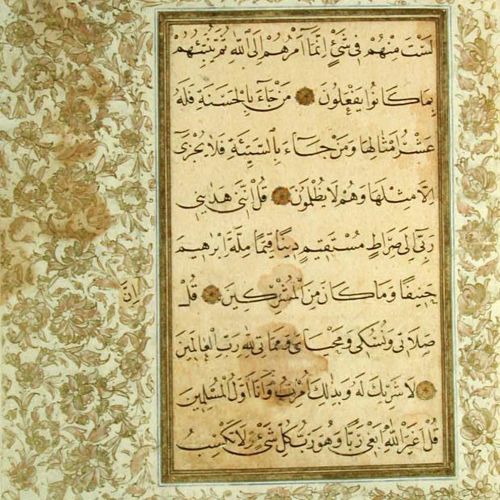 لَسْتَ مِنْهُمْ فِي شَيْءٍ اِنَّمَا اَمْرُهُمْ اِلَى اللهِ ثُمَّ يُنَبِّئُهُمْ
بِمَا كَانُوا يَفْعَلُونَ مَنْ جَآءَ بِالْحَسَنَةِ فَلَهُ
عَشْرُ اَمْثَالِهَا وَمَنْ جَآءَ بِالسَّيِّئَةِ فَلَا يُجْزٰىٓ
اِلَّا مِثْلَهَا وَهُمْ لَا يُظْلَمُونَ قُلْ اِنَّنِي هَدٰينِي
رَبِّٓي اِلٰى صِرَاطٍ مُسْتَقِيمٍ دِينًا قِيَمًا مِلَّةَ اِبْرٰهِيمَ
حَنِيفًا وَمَا كَانَ مِنَ الْمُشْرِكِينَ قُلْ
اِنَّ
صَلَاتِي وَنُسُكِي وَمَحْيَايَ وَمَمَاتِي لِلّٰهِ رَبِّ الْعَالَمِينَ
لَا شَرِيكَ لَهُ وَبِذٰلِكَ اُمِرْتُ وَاَنَا اَوَّلُ الْمُسْلِمِينَ
قُلْ اَغَيْرَ اللهِ اَبْغِي رَبًّا وَهُوَ رَبُّ كُلِّ شَيْءٍ لَا تَكْسِبُ